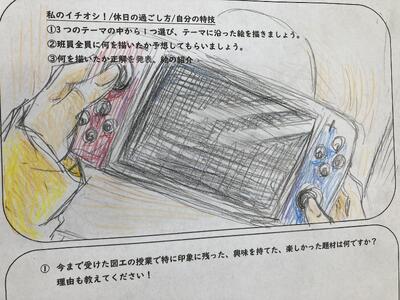 私のイチオシ！/休日の過ごし方/自分の特技
①3つのテーマの中から1つ選び、テーマに沿った絵を描きましょう。
②班員全員に何を描いたか予想してもらいましょう。
③何を描いたか正解を発表、絵の紹介
① 今まで受けた図工の授業で特に印象に残った、興味を持てた、楽しかった題材は何ですか？
理由も教えてください！